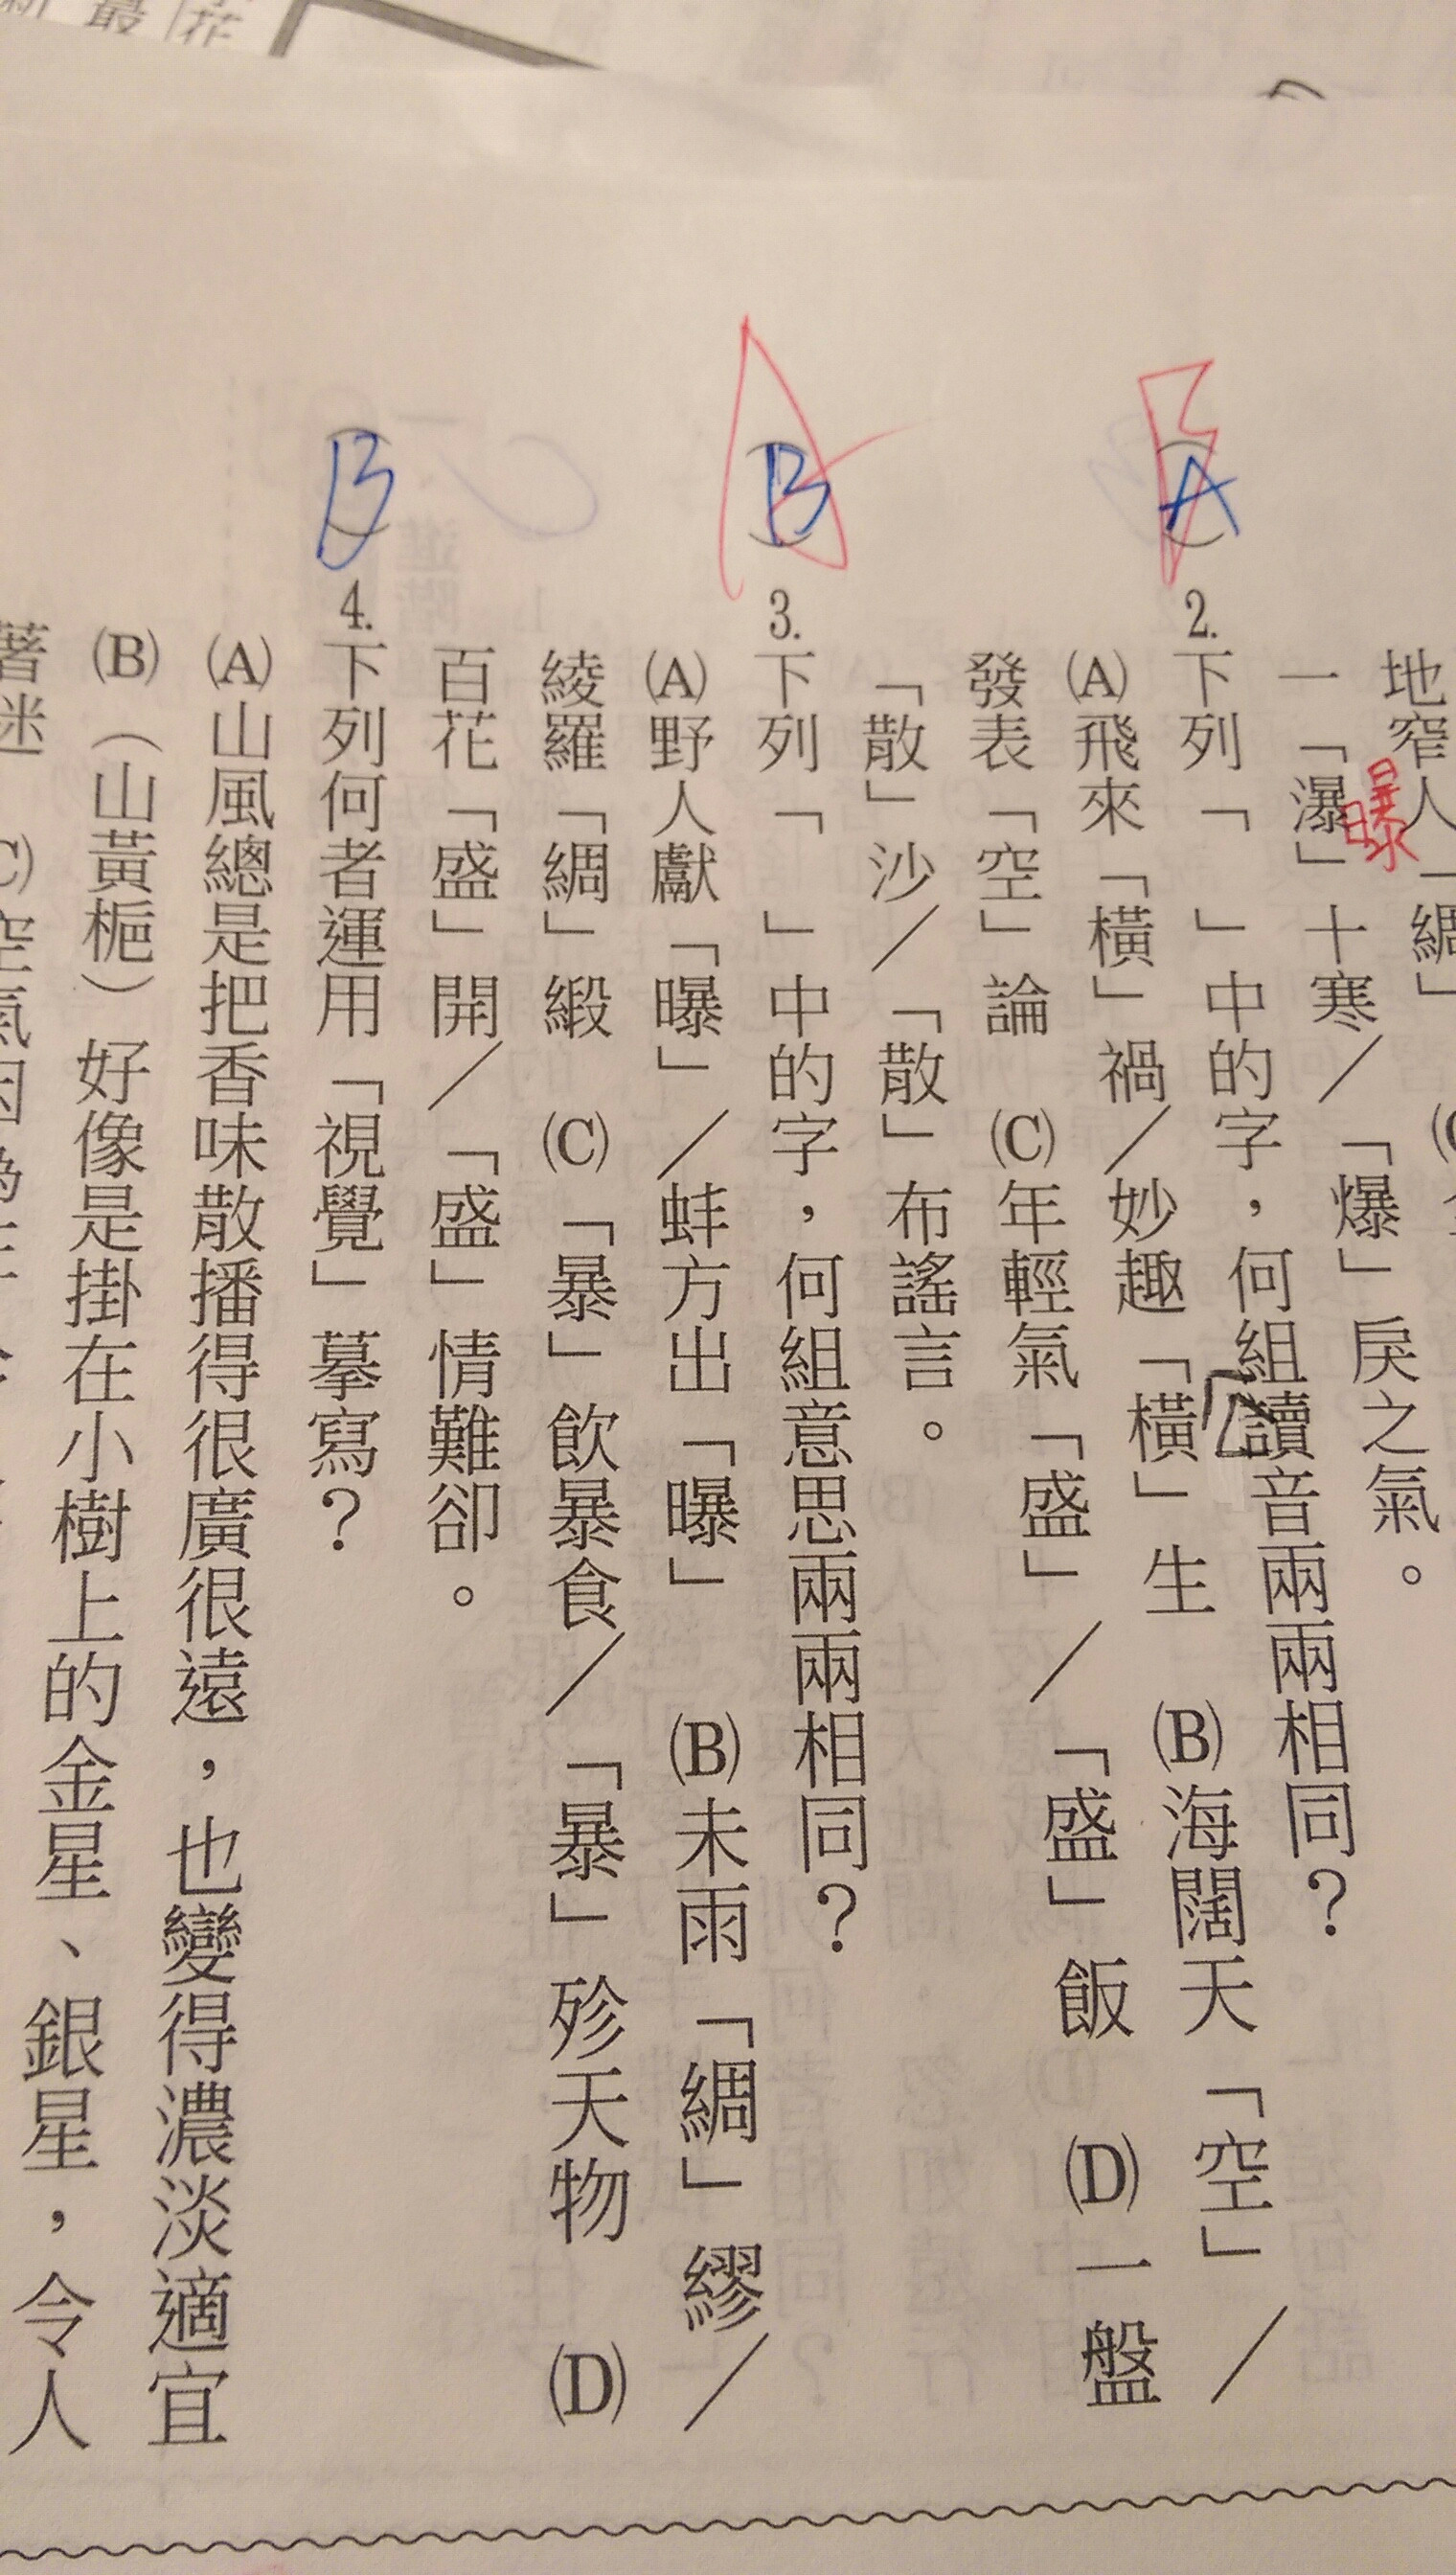 地窄人「綢」
一「瀑」十寒／「爆」戾之氣。
曝
B
A
2.下列「　」中的字，何組讀音兩兩相同？
(A)飛來「橫」禍／妙趣「橫」生　(B)海闊天「空」／
ㄏㄥ
發表「空」論　(C)年輕氣「盛」／「盛」飯　(D)一盤
「散」沙／「散」布謠言。
A
B
3.下列「　」中的字，何組意思兩兩相同？
(A)野人獻「曝」／蚌方出「曝」　(B)未雨「綢」繆／
綾羅「綢」緞　(C)「暴」飲暴食／「暴」殄天物　(D)
百花「盛」開／「盛」情難卻。
B
4.下列何者運用「視覺」摹寫？
(A)山風總是把香味散播得很廣很遠，也變得濃淡適宜
(B)（山黃梔）好像是掛在小樹上的金星、銀星，令人
著迷　(C)空氣因為